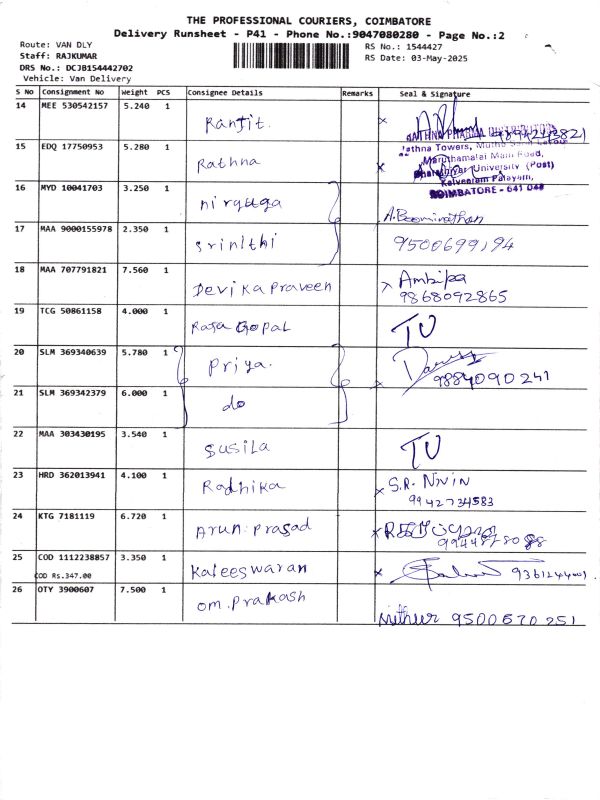 THE PROFESSIONAL COURIERS, COIMBATORE
Delivery Runsheet - P41 - Phone No.:9047080280 - Page No.:2
Route: VAN DLY
RS No.: 1544427
Staff: RAJKUMAR
RS Date: 03-May-2025
DRS No.: DCJB154442702
Vehicle: Van Delivery
S No Consignment No Weight PCS Consignee Details Remarks Seal & Signature
14 MEE 530542157 5.240 1
Ranjit.
9894242821
15 EDQ 17750953 5.280 1
Rathna
RATHNA PHARMA DISTRIBUTOR
Rathna Towers,
Maruthamalai Main Road,
Bharathiyar University (Post)
Kalveeram Palayam,
COIMBATORE - 641 046
16 MYD 10041703 3.250 1
A.Boominathan
17 MAA 9000155978 2.350 1
Srinithi
9500699194
18 MAA 707791821 7.560 1
Devika Praveen
x Ambika
9868092865
19 TCG 50861158 4.000 1
Raja Gopal
TU
20 SLM 369340639 5.780 1
Priya.
9884090241
21 SLM 369342379 6.000 1
do
22 MAA 303430195 3.540 1
Susila
TU
23 HRD 362013941 4.100 1
Radhika
x S.R. Nivin
9942734583
24 KTG 7181119 6.720 1
Arun prasad
25 COD 1112238857 3.350 1
COD Rs.347.00
Kaleeswaran
26 OTY 3900607 7.500 1
om.Prakash
9500570251